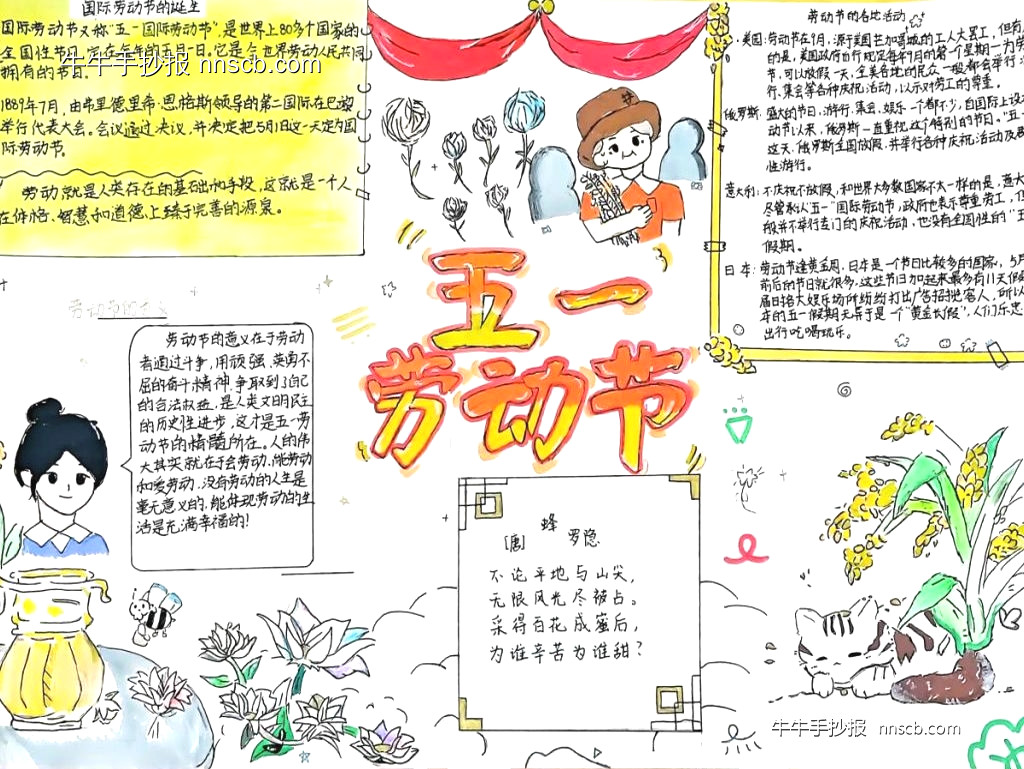 国际劳动节的诞生
国际劳动节又称"五一国际劳动节",是世界上80多个国家的
全国性节日。定在每年的五月一日。它是全世界劳动人民共同
拥有的节日。
牛牛手抄报 nnscb.com
1889年7月,由弗里德里希·恩格斯领导的第二国际在巴黎
举行代表大会。会议通过决议,并决定把5月1日这一天定为国
际劳动节。
劳动就是人类存在的基础和手段,这就是一个人
在体格、智慧和道德上臻于完善的源泉。
劳动节的意义
劳动节的意义在于劳动
者通过斗争,用顽强、英勇不
屈的奋斗精神,争取到了自己
的合法权益,是人类文明民主
的历史性进步,这才是五一劳
动节的精髓所在。人的伟
大其实就在于会劳动、能劳动
和爱劳动,没有劳动的人生是
毫无意义的,能体现劳动的生
活是充满幸福的!
五一
劳动节
蜂
[唐] 罗隐
不论平地与山尖,
无限风光尽被占。
采得百花成蜜后,
为谁辛苦为谁甜?
劳动节的各地活动
美国:劳动节在9月,源于美国芝加哥城的工人大罢工,但有
的是,美国政府自行规定每年9月的第一个星期一为劳
节,可以放假一天,全美各地的民众一般都会举行
行、集会等各种庆祝活动,以示对劳工的尊重。
俄罗斯:盛大的节日,游行、集会、娱乐一个都不少,自国际上设
动节以来,俄罗斯一直重视这个特别的节日。"五一
这天,俄罗斯全国放假,并举行各种庆祝活动及
性游行。
意大利:不庆祝不放假,和世界大多数国家不太一样的是,意大
尽管承认"五一"国际劳动节,政府也表示尊重劳工,但
般并不举行专门的庆祝活动,也没有全国性的"五
假期。
日本:劳动节逢黄金周,日本是一个节日比较多的国家,5月
前后的节日就很多,这些节日加起来最多有11天假
届时各大娱乐场所纷纷打出广告招揽客人,所以
年的五一假期无异于是一个"黄金长假",人们乐忠
出行吃喝玩乐。
牛牛手抄报 nnscb.com